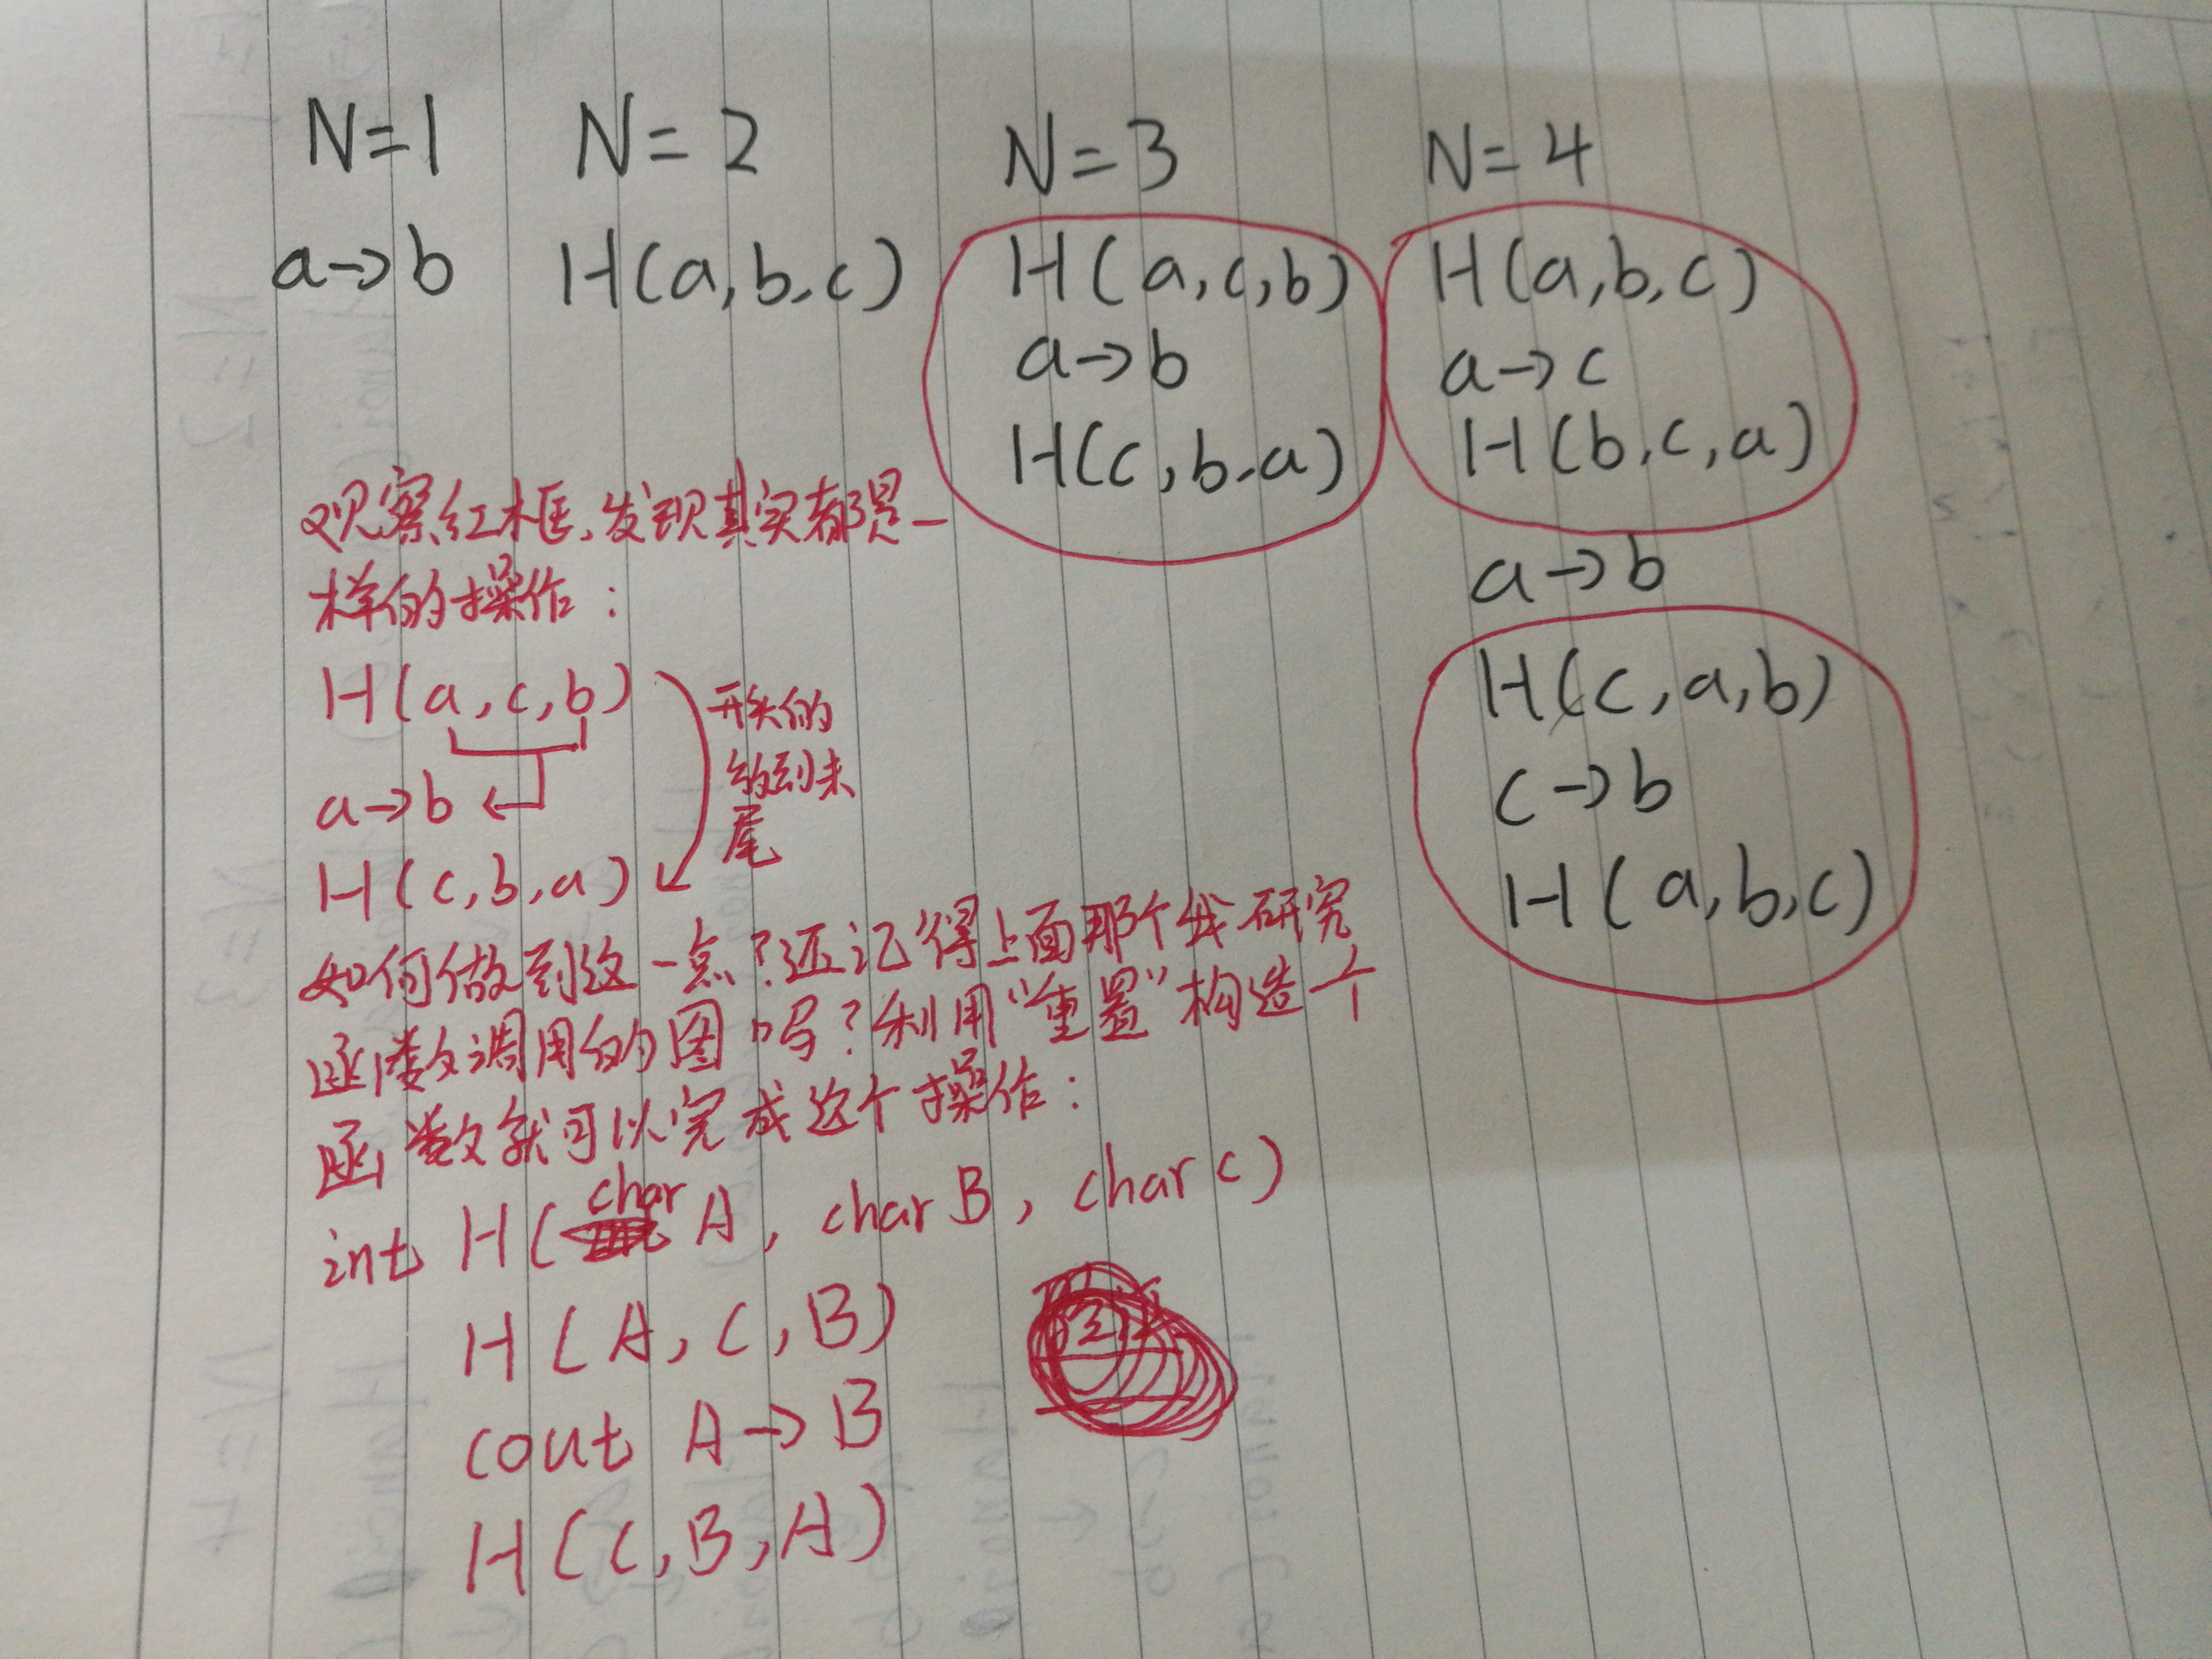 N=1 N=2 N=3 N=4
a→b H(a,b,c) H(a,c,b) H(a,b,c)
a→b a→c
H(c,b,a) H(b,c,a)
a→b
H(c,a,b)
c→b
H(a,b,c)
观察红框,发现其实都是一
样的操作:
H(a,c,b)
a→b
H(c,b,a)
开头的
给到末
尾
如何做到这一点?还记得上面那个我研究
函数调用的图吗?利用“重置”构造一个
函数就可以完成这个操作:
int H(char A, char B, char C)
H(A,C,B)
cout A→B
H(C,B,A)